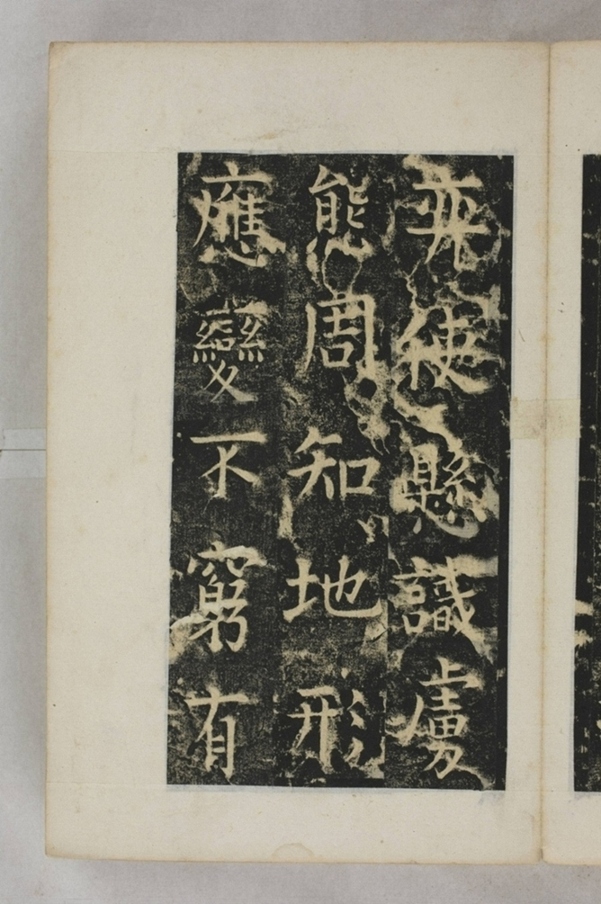 亦使懸識虜
態周知地形
應變不窮有